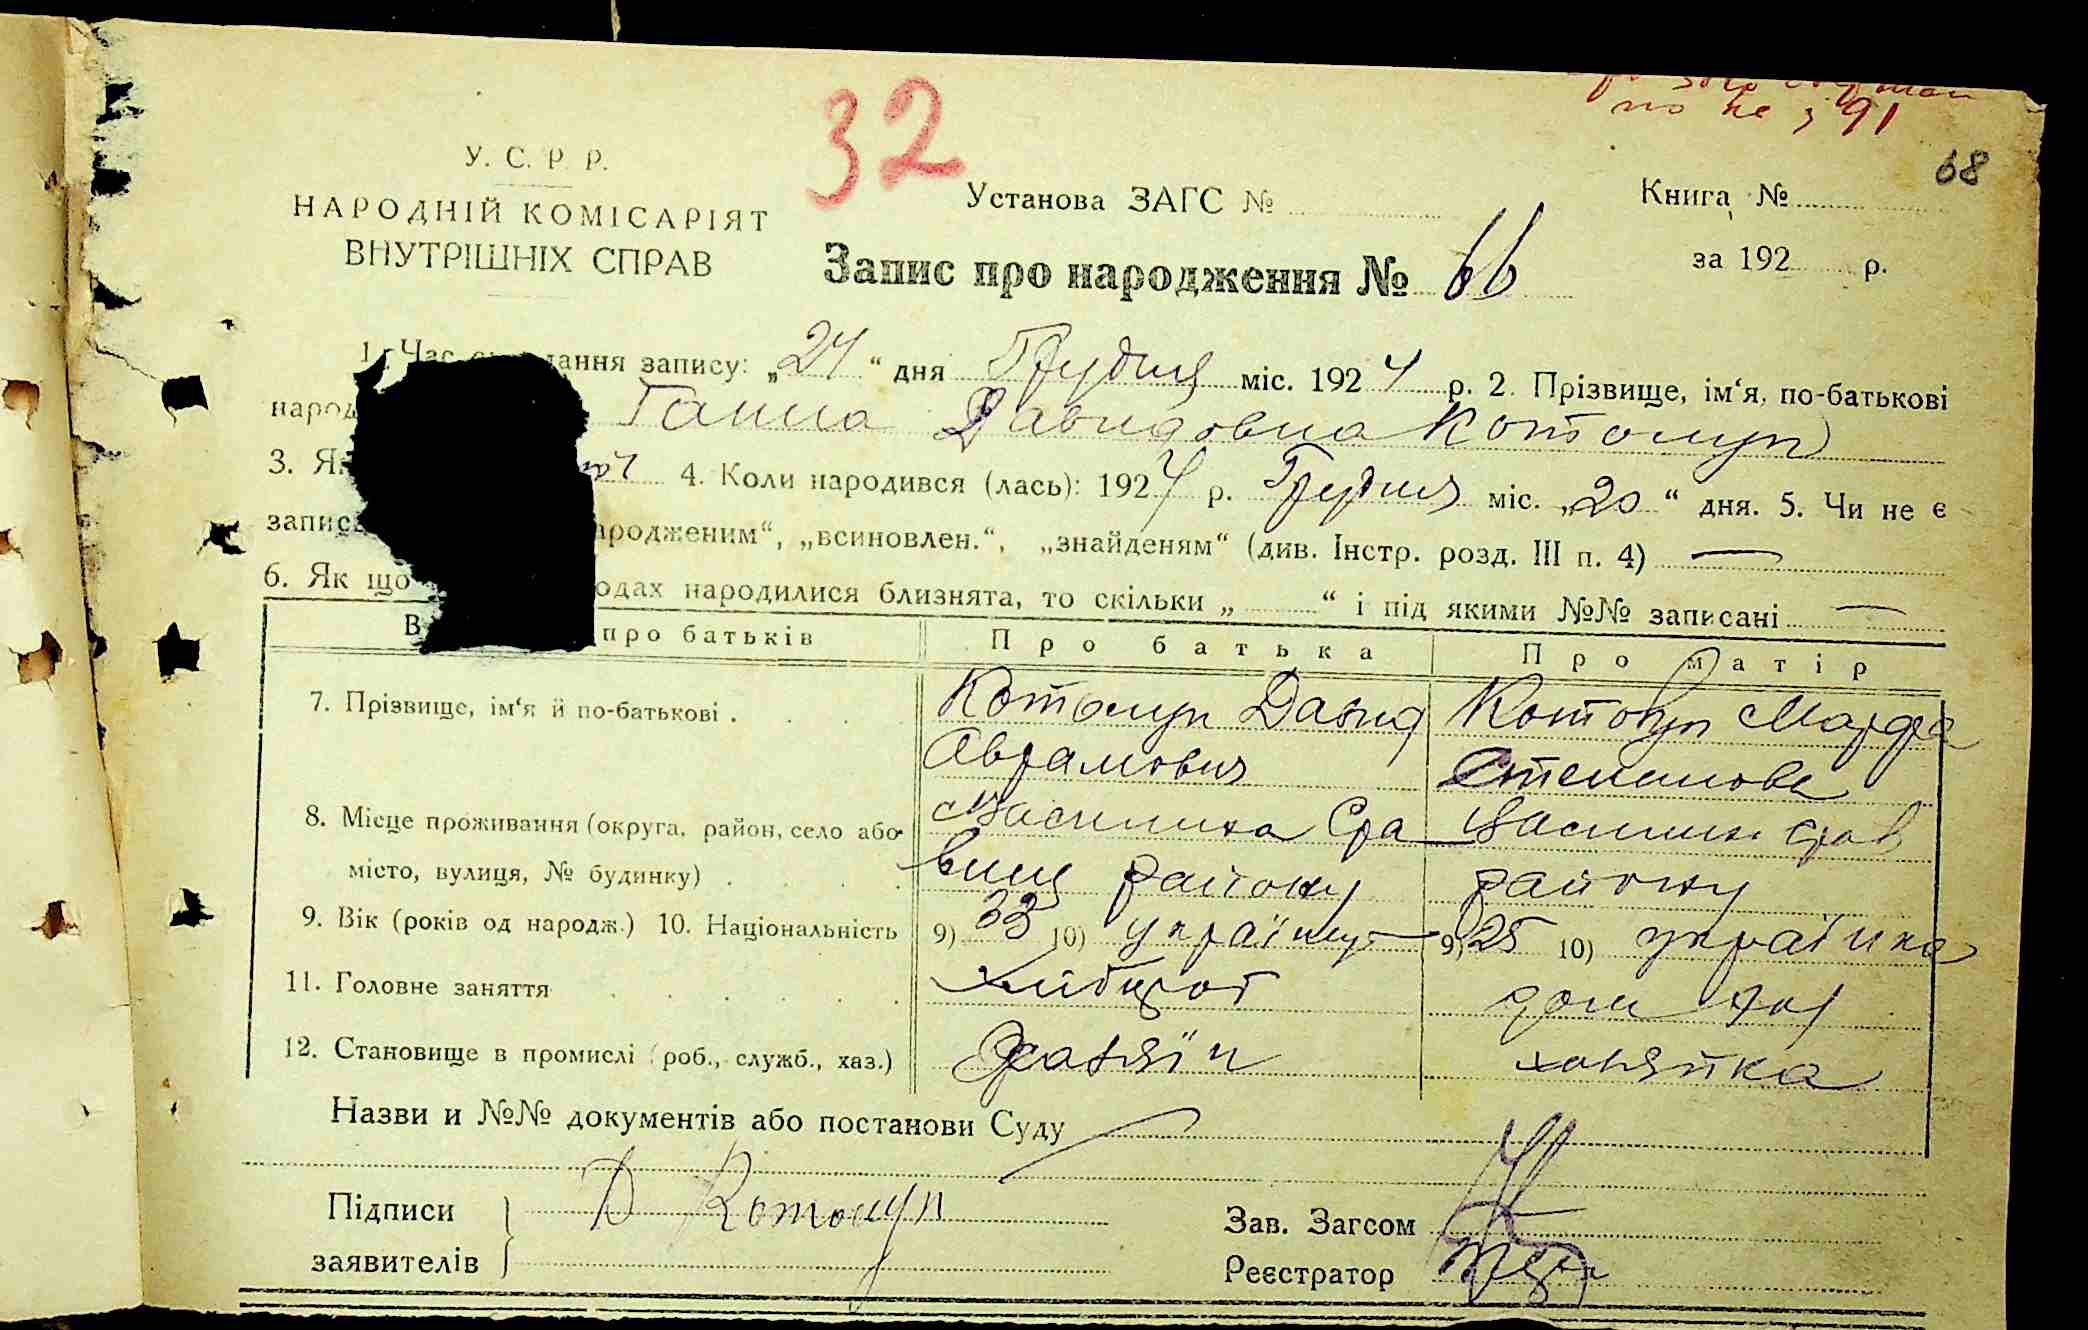 но не з 91
32
68
У. С. Р. Р.
НАРОДНІЙ КОМІСАРІЯТ
ВНУТРІШНІХ СПРАВ
Установа ЗАГС №
Книга №
за 192 р.
Запис про народження № 66
1. Час складання запису: „24“ дня Грудня міс. 1924 р. 2. Прізвище, ім‘я, по-батькові
народ Ганна Давидовна Котолуп
3. Як 4. Коли народився (лась): 1924 р. Грудня міс. „20“ дня. 5. Чи не є
запис ародженим“, „всиновлен.“, „знайденям“ (див. Інстр. розд. III п. 4) —
6. Як що одах народилися близнята, то скільки „ “ і під якими №№ записані —
В про батьків Про батька Про матір
7. Прізвище, ім‘я й по-батькові . Котолуп Давид Котолуп Марфа
Аврамович Степанова
8. Місце проживання (округа, район, село або
місто, вулиця, № будинку) . району району
9. Вік (років од народж.) 10. Національність 9) 33 10) українец 9) 25 10) українка
11. Головне заняття хлібороб дом хоз
12. Становище в промислі (роб., служб., хаз.) хазяїн хозяйка
Назви и №№ документів або постанови Суду
Підписи Д Котолуп
заявителів
Зав. Загсом
Реєстратор